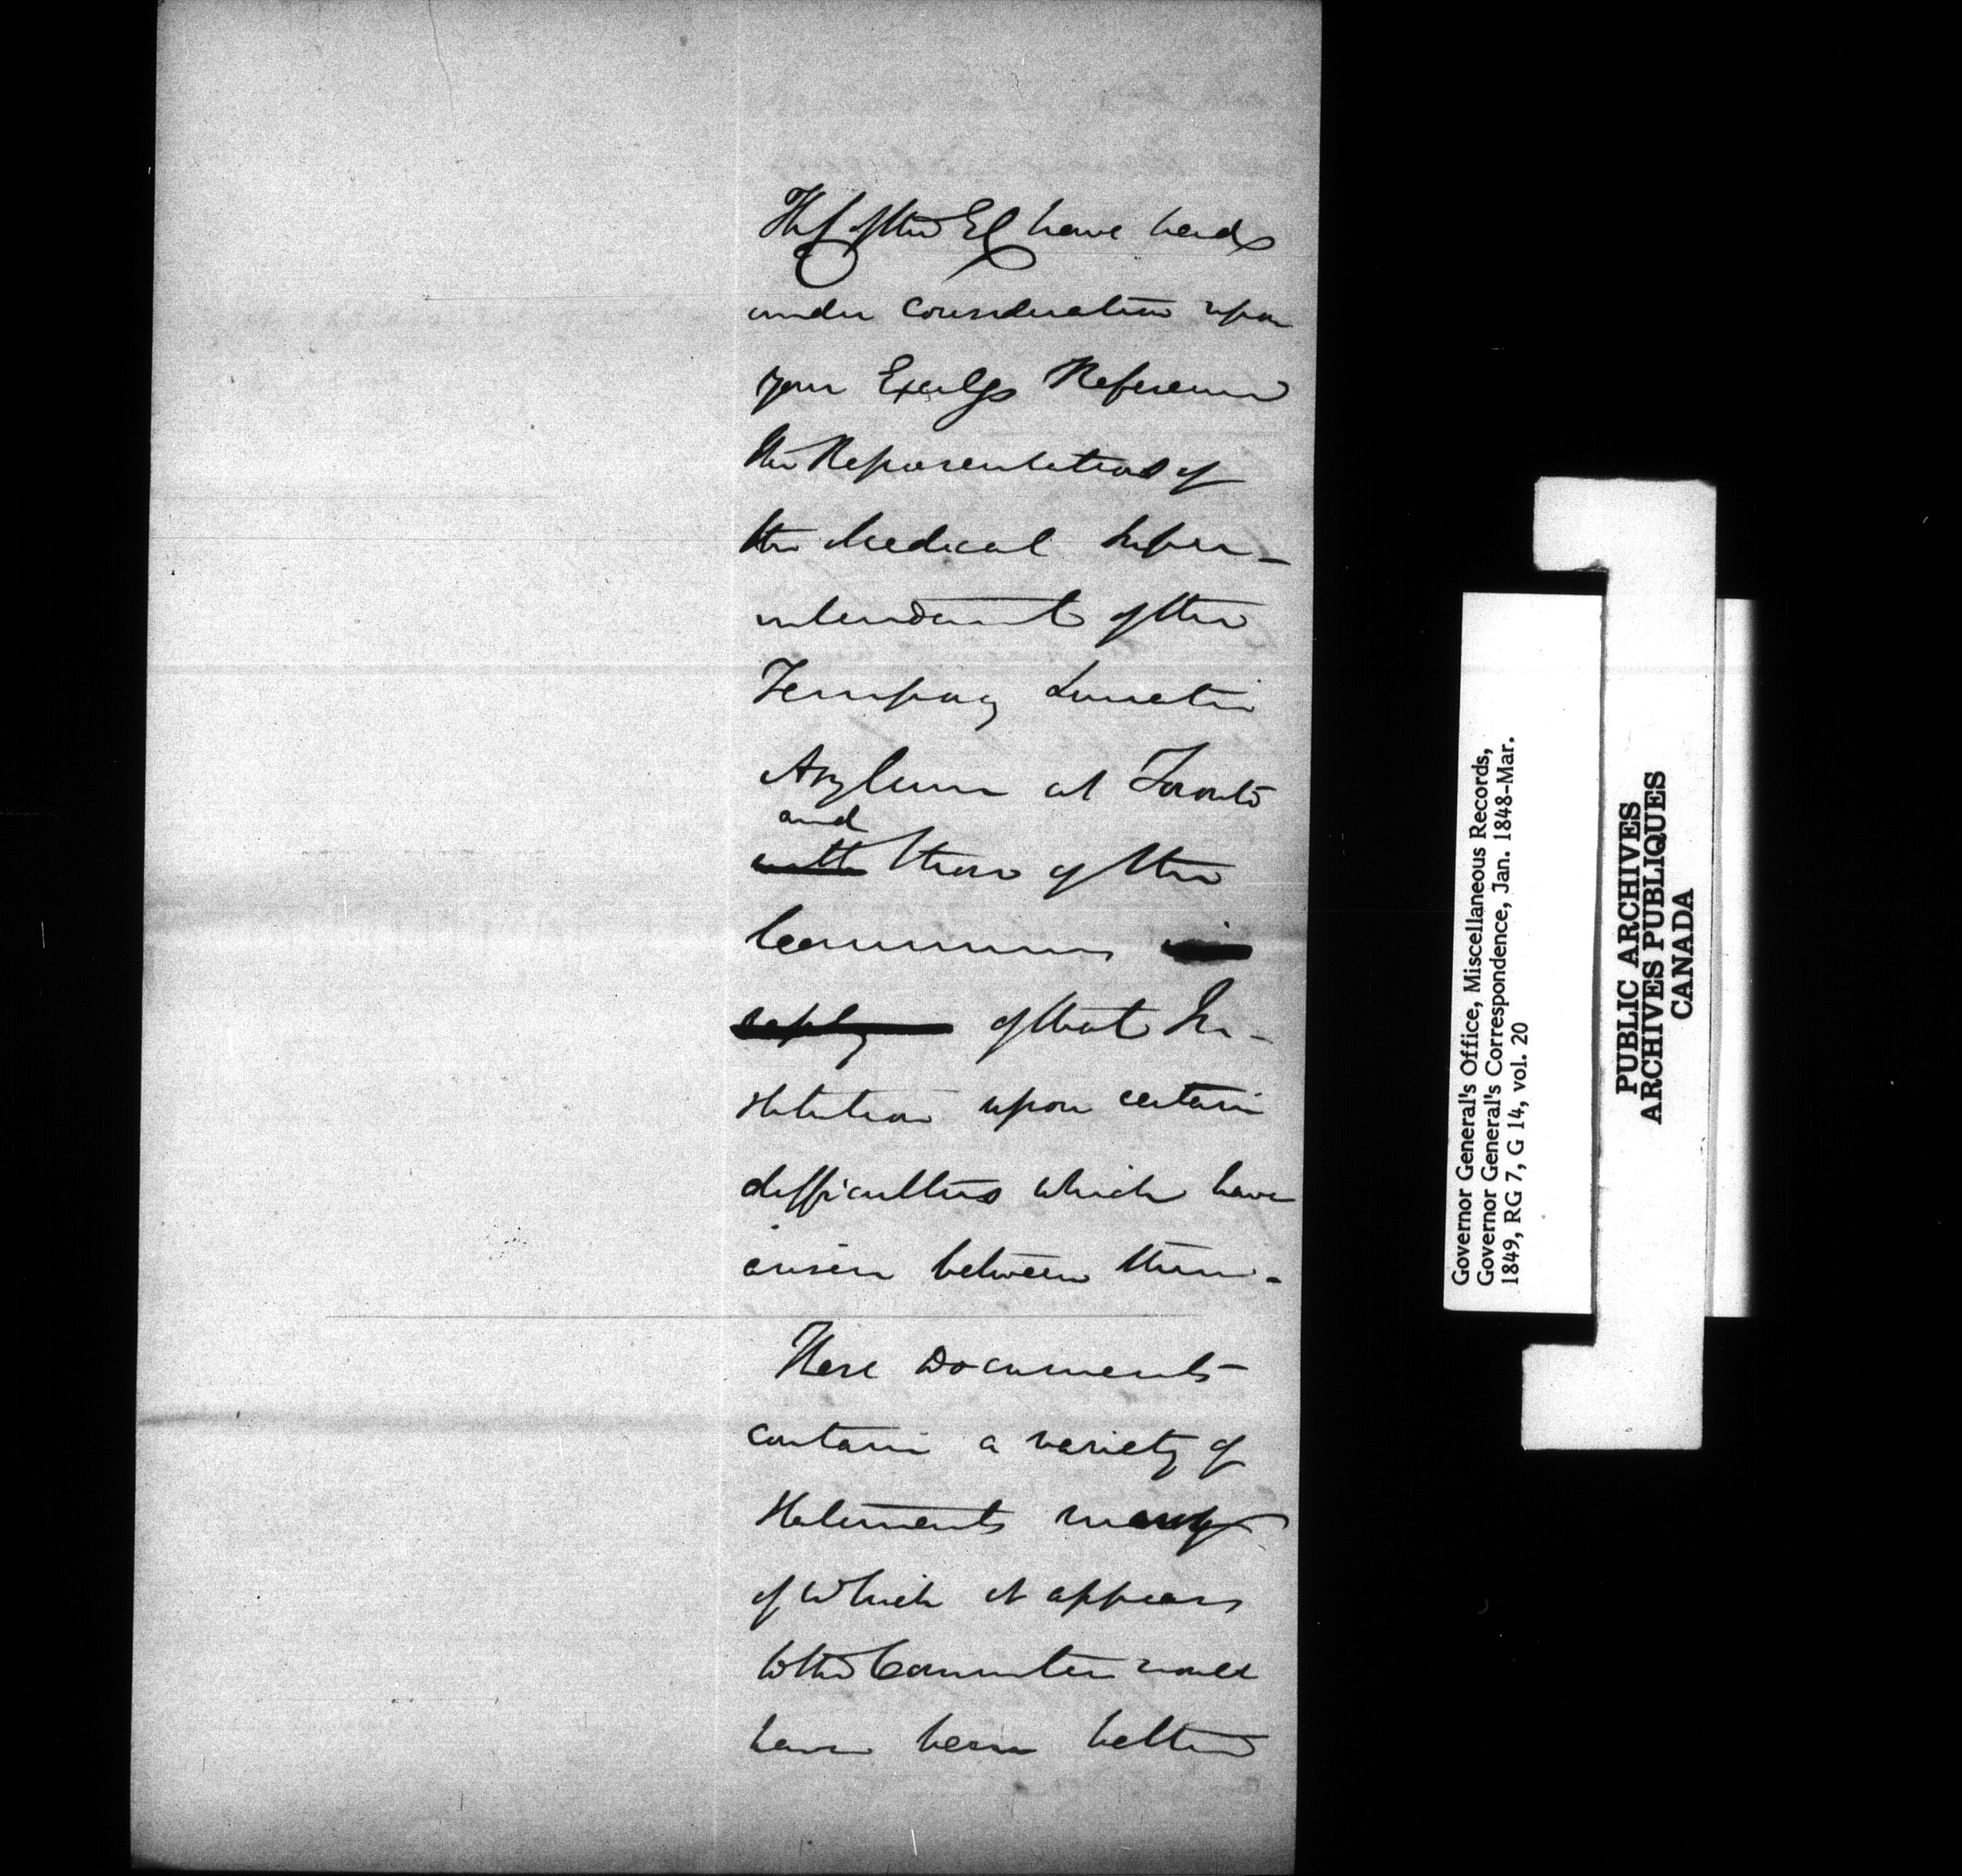 The C of the EC have had
under consideration upon
your Excelys Reference
the Representations of
the Medical Super-
intendant of the
Tempory Lunatic
Asylum at Toronto
and
with those of the
Commrs in
reply of that In-
stitution upon certain
difficulties which have
arisen between them.
These Documents
contain a variety of
Statements many
of which it appears
to the Committee would
have been better
Governor General's Office, Miscellaneous Records,
Governor General's Correspondence, Jan. 1848-Mar.
1849, RG 7, G 14, vol. 20
PUBLIC ARCHIVES
ARCHIVES PUBLIQUES
CANADA